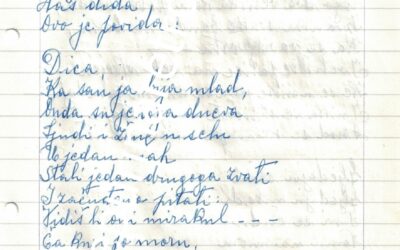 Naš dida
Ovo je povida:
Dica,
Ka san ja bia mlad,
Onda su jedna dneva
Ljudi i žene u selu
U jedan mah
Stali jedan drugoga zvati
I začuđeno pitati:
Vidiš li ovi mirakul - - -
Ča km po moru,